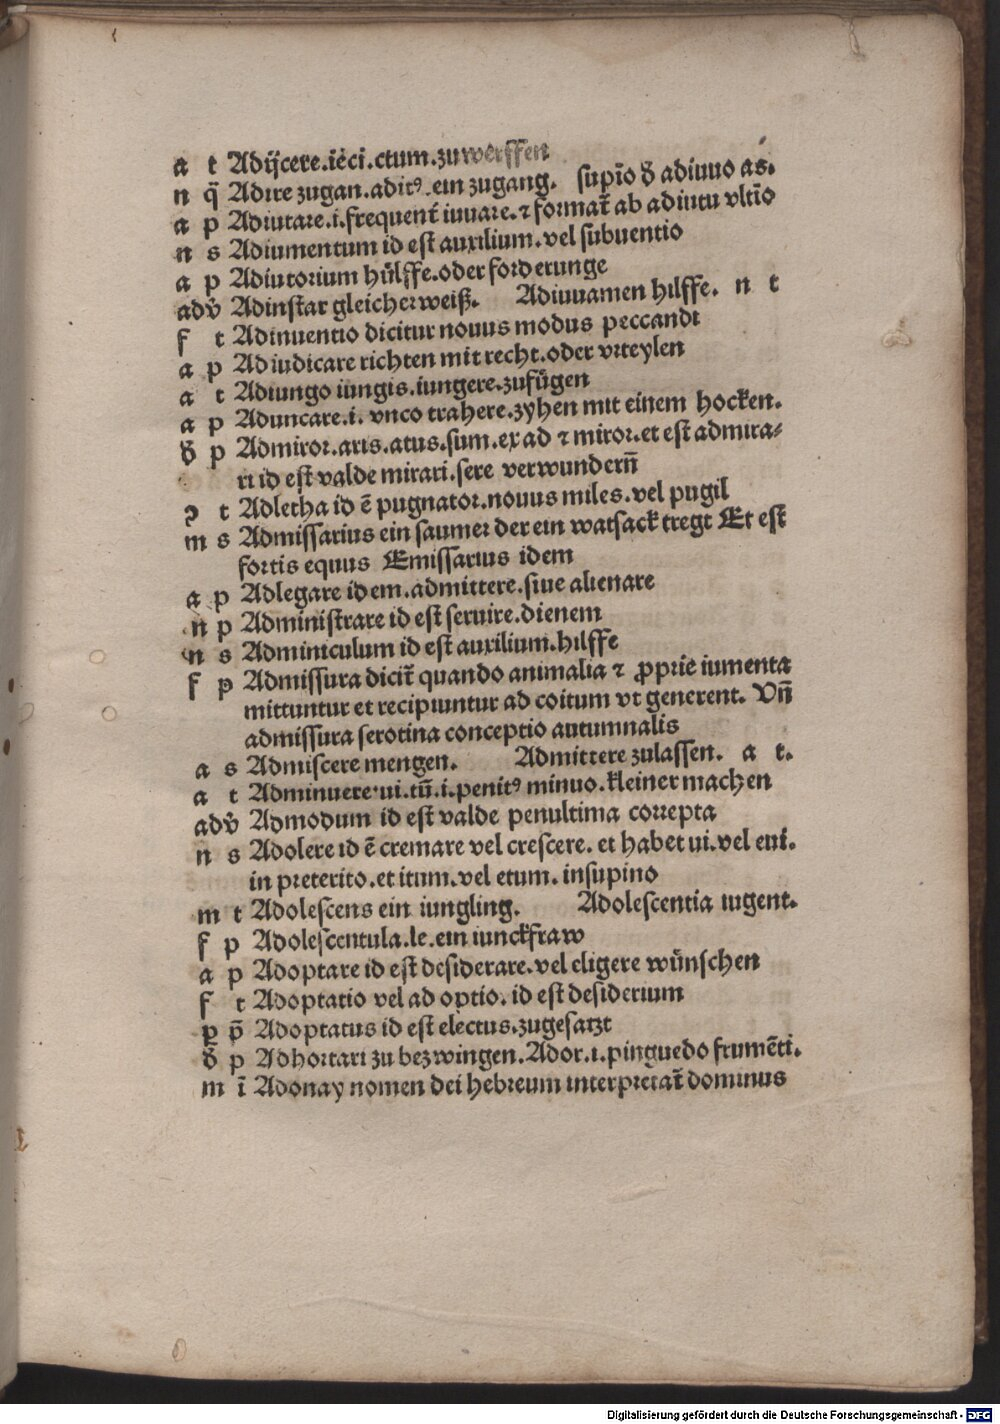 a t Adijcere.iëci.ctum.zuwerffen
n q̄ Adire zugan.aditꝰ.ein zugang. supīo đ adiuuo as.
a p Adiutare.i.frequent̄ iuuare.⁊ format̄ ab adiutu vltīo
n s Adiumentum id est auxilium.vel subuentio
a p Adiutorium hülffe.oder forderunge
adv̄ Adinstar gleicherweiß. Adiuuamen hilffe. n t
f t Adinuentio dicitur nouus modus peccandi
a p Adiudicare richten mit recht.oder vrteylen
a t Adiungo iungis.iungere.zufügen
a p Aduncare.i. vnco trahere.zyhen mit einem hocken.
đ p Admiror.aris.atus.sum.ex ad ⁊ miror.et est admira⸗
ri id est valde mirari.sere verwundern̄
ꝯ t Adletha id ē pugnator.nouus miles.vel pugil
m s Admissarius ein saumer der ein watsack tregt Et est
fortis equus Emissarius idem
a p Adlegare idem.admittere.siue alienare
n p Administrare id est seruire.dienem
n s Adminiculum id est auxilium.hilffe
f p Admissura dicit̄ quando animalia ⁊ ꝓprie iumenta
mittuntur et recipiuntur ad coitum vt generent. Vn̄
admissura serotina conceptio autumnalis
a s Admiscere mengen. Admittere zulassen. a t.
a t Adminuere.ui.tū.i.penitꝰ minuo.kleiner machen
adv̄ Admodum id est valde penultima correpta
n s Adolere id ē cremare vel crescere. et habet ui.vel eui.
in preterito.et itum.vel etum. insupino
m t Adolescens ein iungling. Adolescentia iugent.
f p Adolescentula.le.ein iunckfraw
a p Adoptare id est desiderare.vel eligere wünschen
f t Adoptatio vel adoptio. id est desiderium
ꝑ p̄ Adoptatus id est electus.zugesatzt
đ p Adhortari zu bezwingen.Ador.i.pinguedo frumēti.
m ī Adonay nomen dei hebreum interpretat̄ dominus
Digitalisierung gefördert durch die Deutsche Forschungsgemeinschaft - DFG